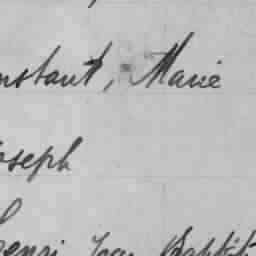 nstant, Marie
oseph
Henri Jean Baptist